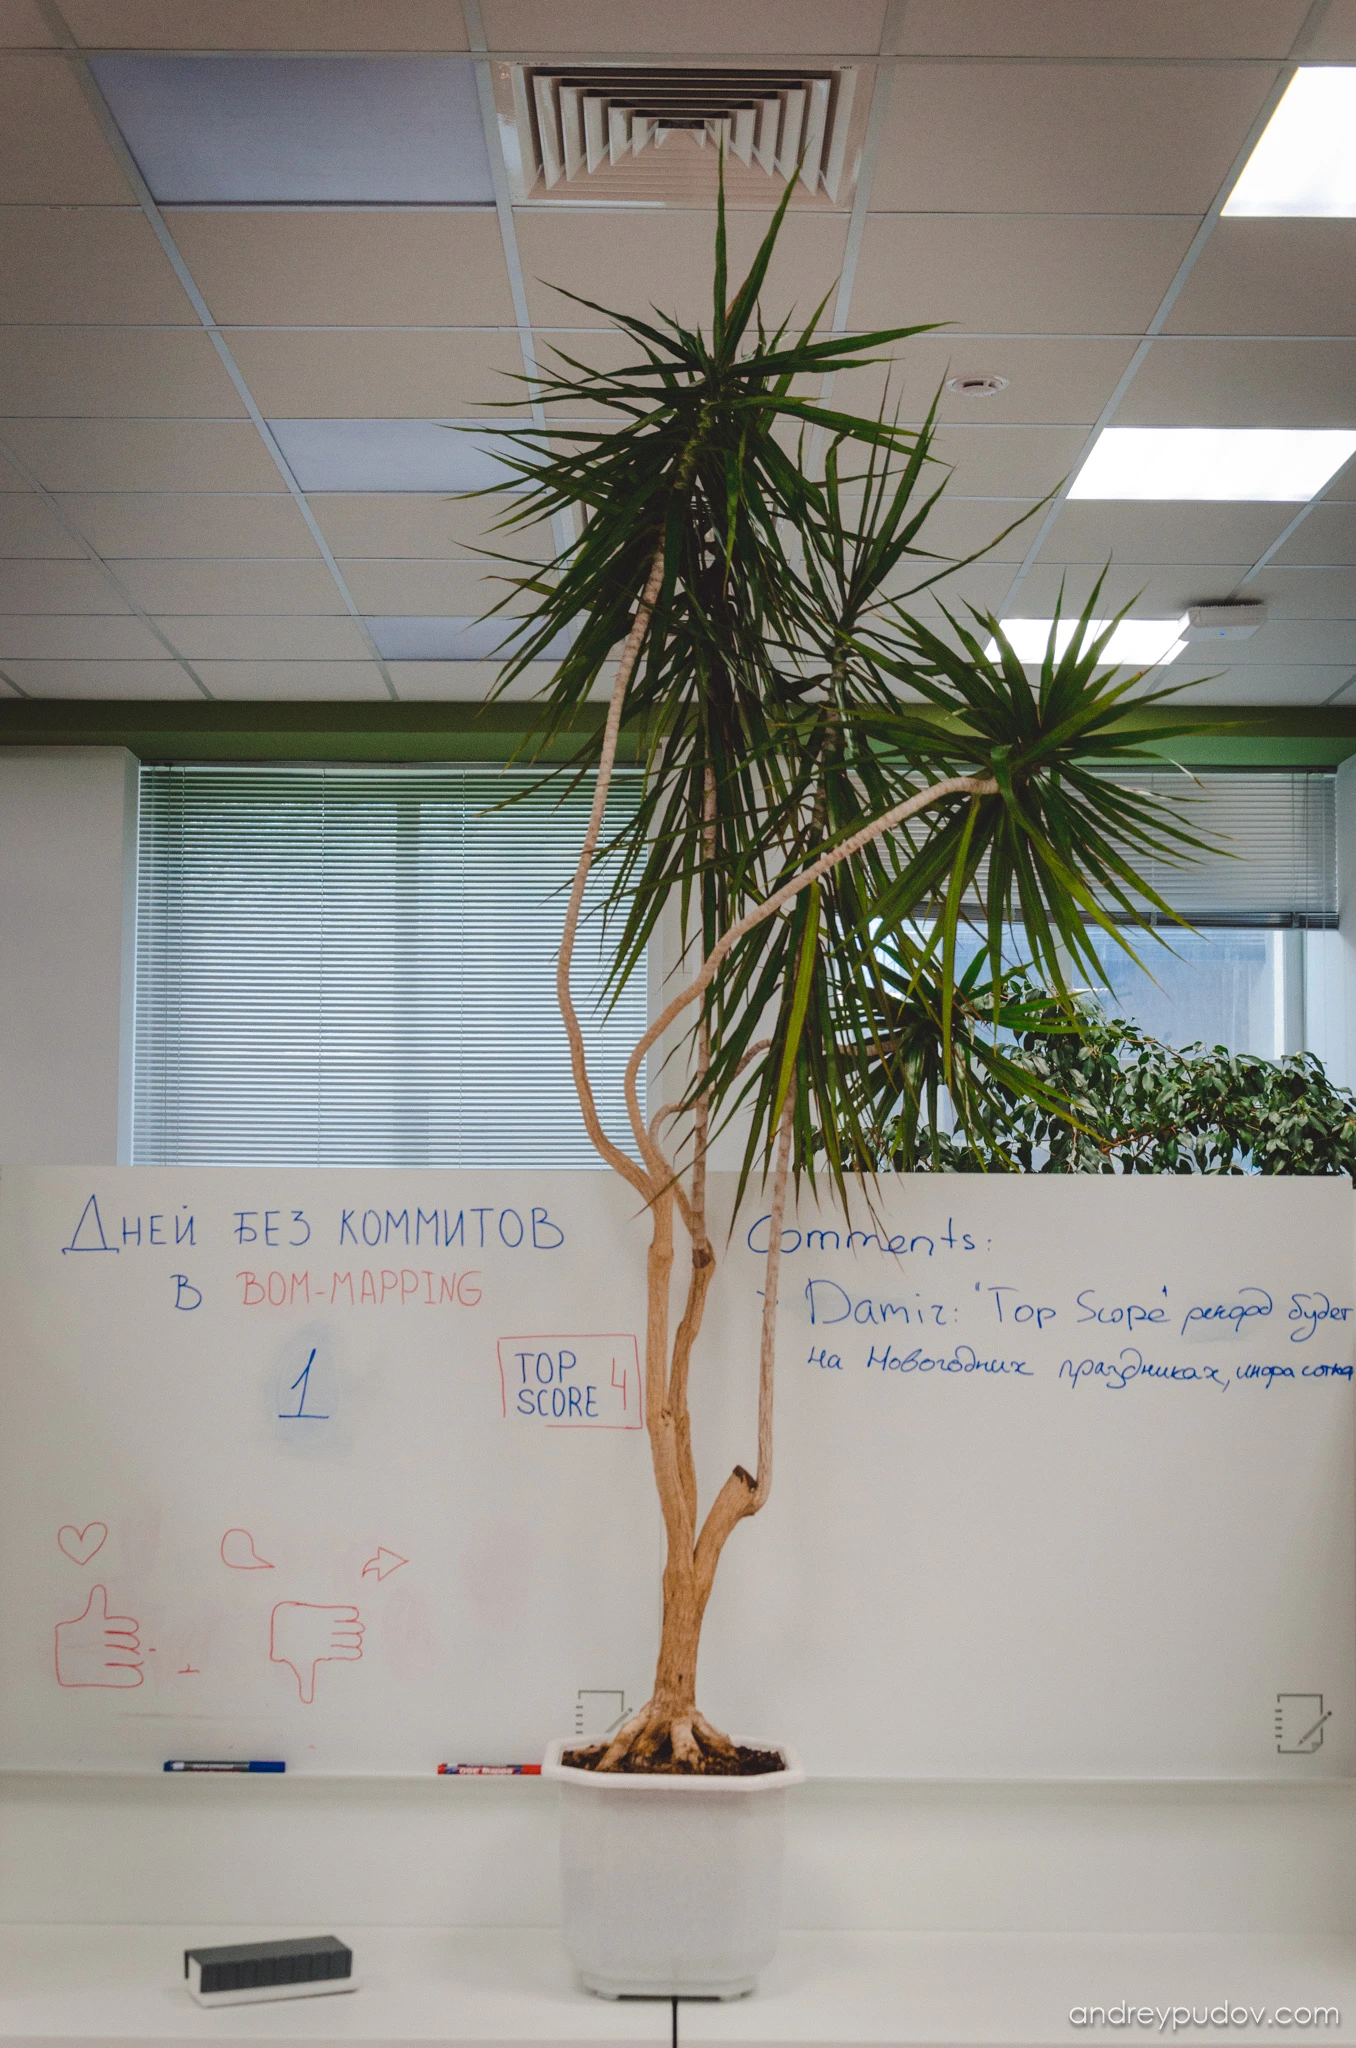 Дней без коммитов
в BOM-MAPPING
1
TOP
SCORE 4
Comments:
- Damir: "Top Score" рекорд будет
на Новогодних праздниках, инфа сотка
andreypudov.com